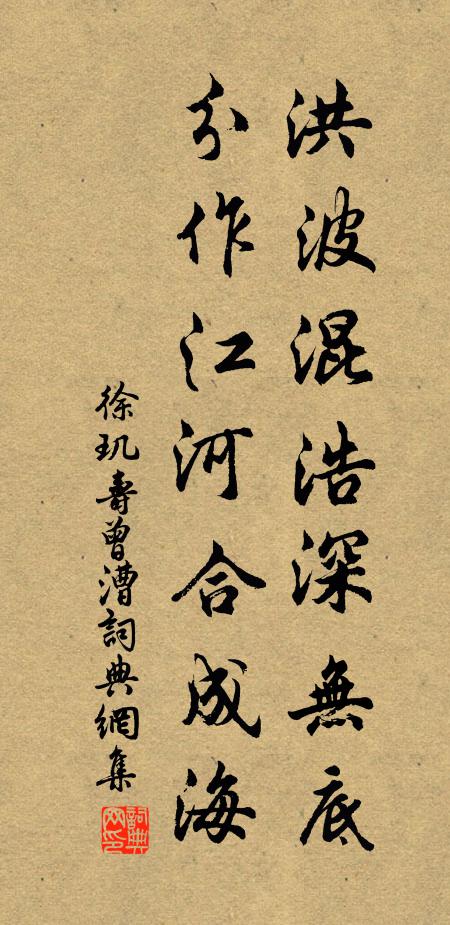 洪波混浩深無底
分作江河合成海
徐玑壽曾漕詞典網集
詞典网印